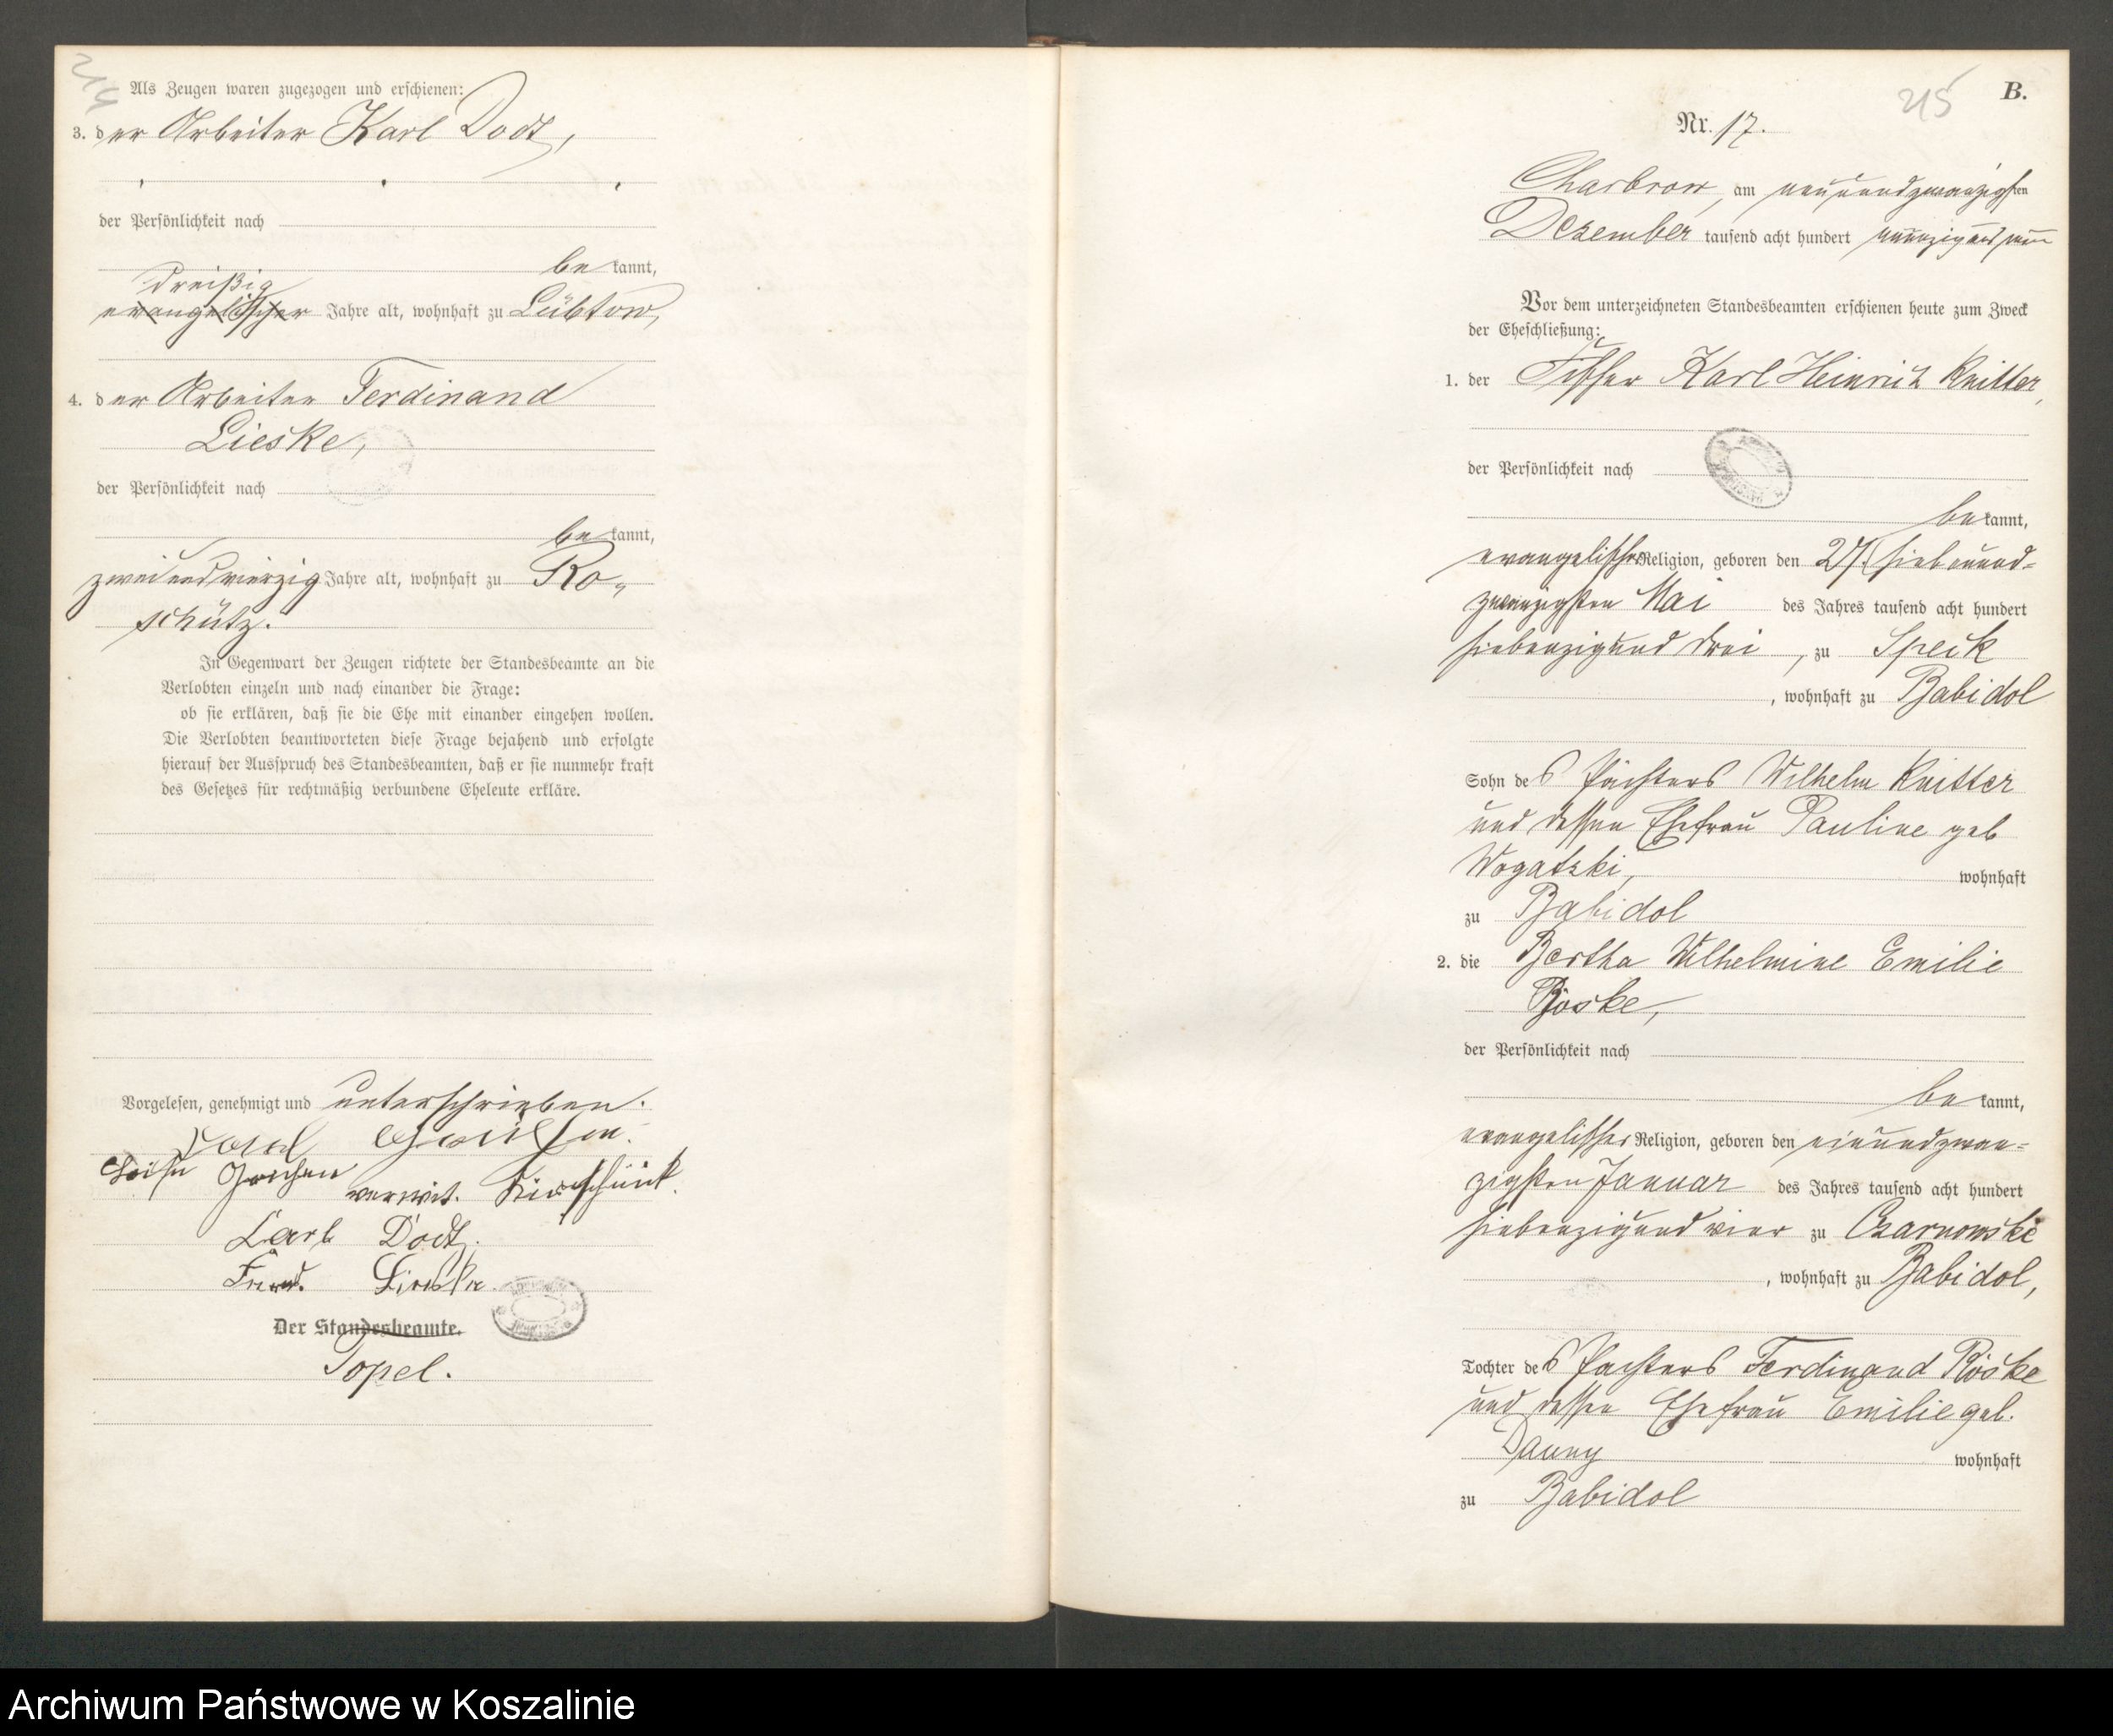 214
Als Zeugen waren zugezogen und erschienen:
3. der Arbeiter Karl Dodt,
der Persönlichkeit nach
bekannt,
dreißig
evangelischer Jahre alt, wohnhaft zu Lübtow,
4. der Arbeiter Ferdinand
Lieske,
der Persönlichkeit nach
bekannt,
zweiundvierzig Jahre alt, wohnhaft zu Ro-
schütz.
In Gegenwart der Zeugen richtete der Standesbeamte an die
Verlobten einzeln und nach einander die Frage:
ob sie erklären, daß sie die Ehe mit einander eingehen wollen.
Die Verlobten beantworteten diese Frage bejahend und erfolgte
hierauf der Ausspruch des Standesbeamten, daß er sie nunmehr kraft
des Gesetzes für rechtmäßig verbundene Eheleute erkläre.
Vorgelesen, genehmigt und unterschrieben.
verwit.
Carl Dodt.
Ferd. Lieske
Der Standesbeamte.
Topel.
215
B.
Nr. 17.
Charbrow, am neunundzwanzigsten
Dezember tausend acht hundert neunzig und neun
Vor dem unterzeichneten Standesbeamten erschienen heute zum Zweck
der Eheschließung:
1. der Fischer Karl Heinrich Knitter,
der Persönlichkeit nach
bekannt,
evangelischer Religion, geboren den 27. siebenund-
zwanzigsten Mai des Jahres tausend acht hundert
siebenzig und drei, zu Speck
, wohnhaft zu Babidol
Sohn des Pächters Wilhelm Knitter
und dessen Ehefrau Pauline geb
Wogatzki, wohnhaft
zu Babidol
2. die Bertha Wilhelmine Emilie
Röske,
der Persönlichkeit nach
bekannt,
evangelischer Religion, geboren den einundzwan-
zigsten Januar des Jahres tausend acht hundert
siebenzig und vier zu Czarnowske
, wohnhaft zu Babidol,
Tochter des Pächters Ferdinand Röske
und dessen Ehefrau Emilie geb.
wohnhaft
zu Babidol
Archiwum Państwowe w Koszalinie